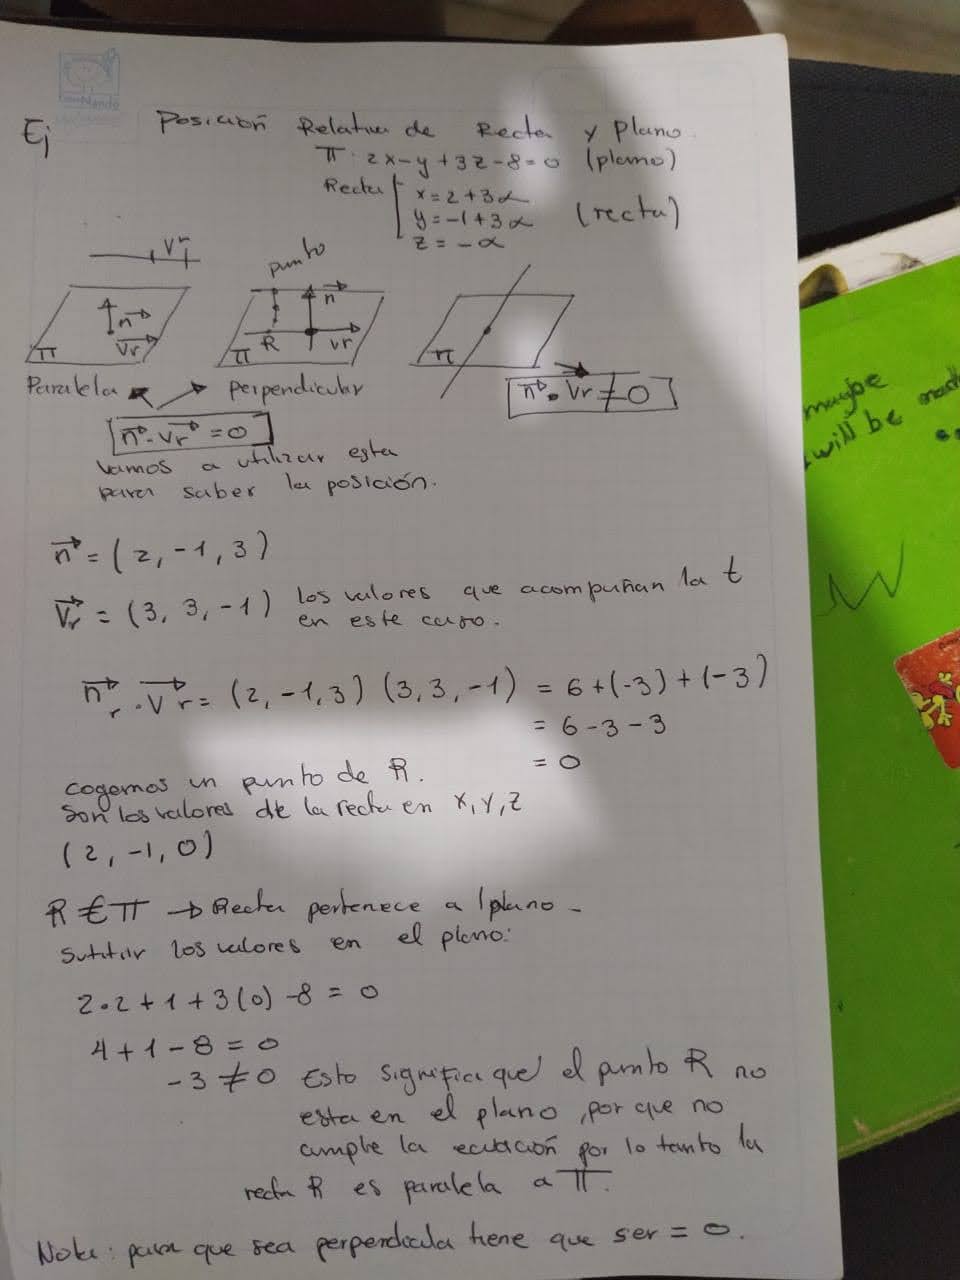 Ej
Posición Relativa de Recta y Plano.
π: 2x-y+3z-8=0 (plano)
Recta { x=2+3α
y=-1+3α (recta)
z=-α
Vr
punto
n Vr π
n Vr R π
π
Paralela perpendicular
n·Vr=0
n·Vr≠0
vamos a utilizar esta
para saber la posición.
n=(2,-1,3)
Vr=(3,3,-1) los valores que acompañan la t
en este caso.
nr·Vr=(2,-1,3)(3,3,-1) = 6+(-3)+(-3)
= 6-3-3
= 0
cogemos un punto de R.
son los valores de la recta en x,y,z
(2,-1,0)
R∈π → Recta pertenece al plano-
sutitur los valores en el plano:
2·2+1+3(0)-8=0
4+1-8=0
-3≠0 Esto significa que el punto R no
esta en el plano, por que no
cumple la ecuación por lo tanto la
recta R es paralela a π.
Nota: para que sea perpendicula tiene que ser = 0.
maybe
will be